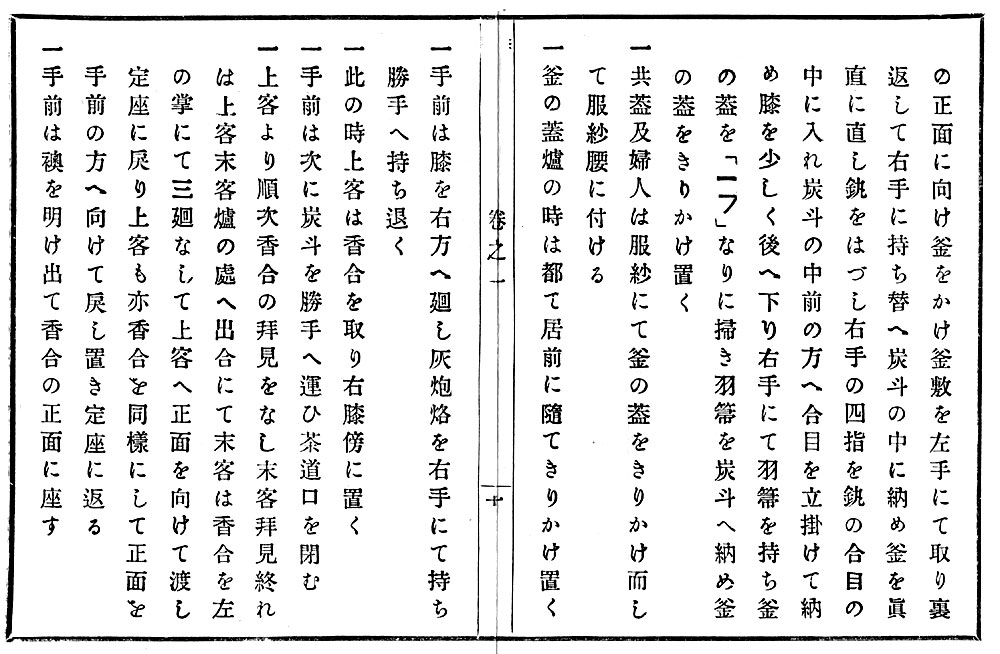 の正面に向け釜をかけ釜敷を左手にて取り裏
返して右手に持ち替へ炭斗の中に納め釜を眞
直に直し鈂をはづし右手の四指を鈂の合目の
中に入れ炭斗の中前の方へ合目を立掛けて納
め膝を少しく後へ下り右手にて羽箒を持ち釜
の葢を「一フ」なりに掃き羽箒を炭斗へ納め釜
の葢をきりかけ置く
一共葢及婦人は服紗にて釜の葢をきりかけ而し
て服紗腰に付ける
一釜の葢爐の時は都て居前に隨てきりかけ置く
卷之一
十
一手前は膝を右方へ廻し灰炮烙を右手にて持ち
勝手へ持ち退く
一此の時上客は香合を取り右膝傍に置く
一手前は次に炭斗を勝手へ運ひ茶道口を閉む
一上客より順次香合の拜見をなし末客拜見終れ
は上客末客爐の處へ出合にて末客は香合を左
の掌にて三廻なして上客へ正面を向けて渡し
定座に戻り上客も亦香合を同樣にして正面を
手前の方へ向けて戻し置き定座に返る
一手前は襖を明け出て香合の正面に座す